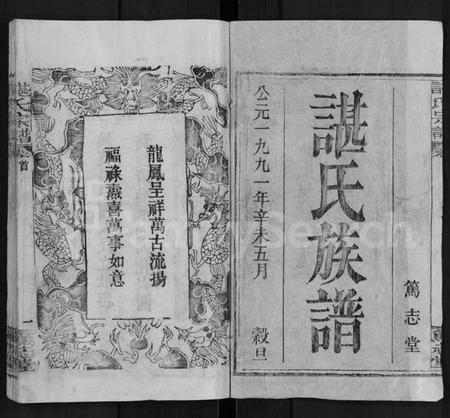 公元一九九一年辛未五月
穀旦
諶氏族譜
篤志堂
龍鳳呈祥萬古流揚
福祿熹喜萬事如意
諶氏宗譜
首
一